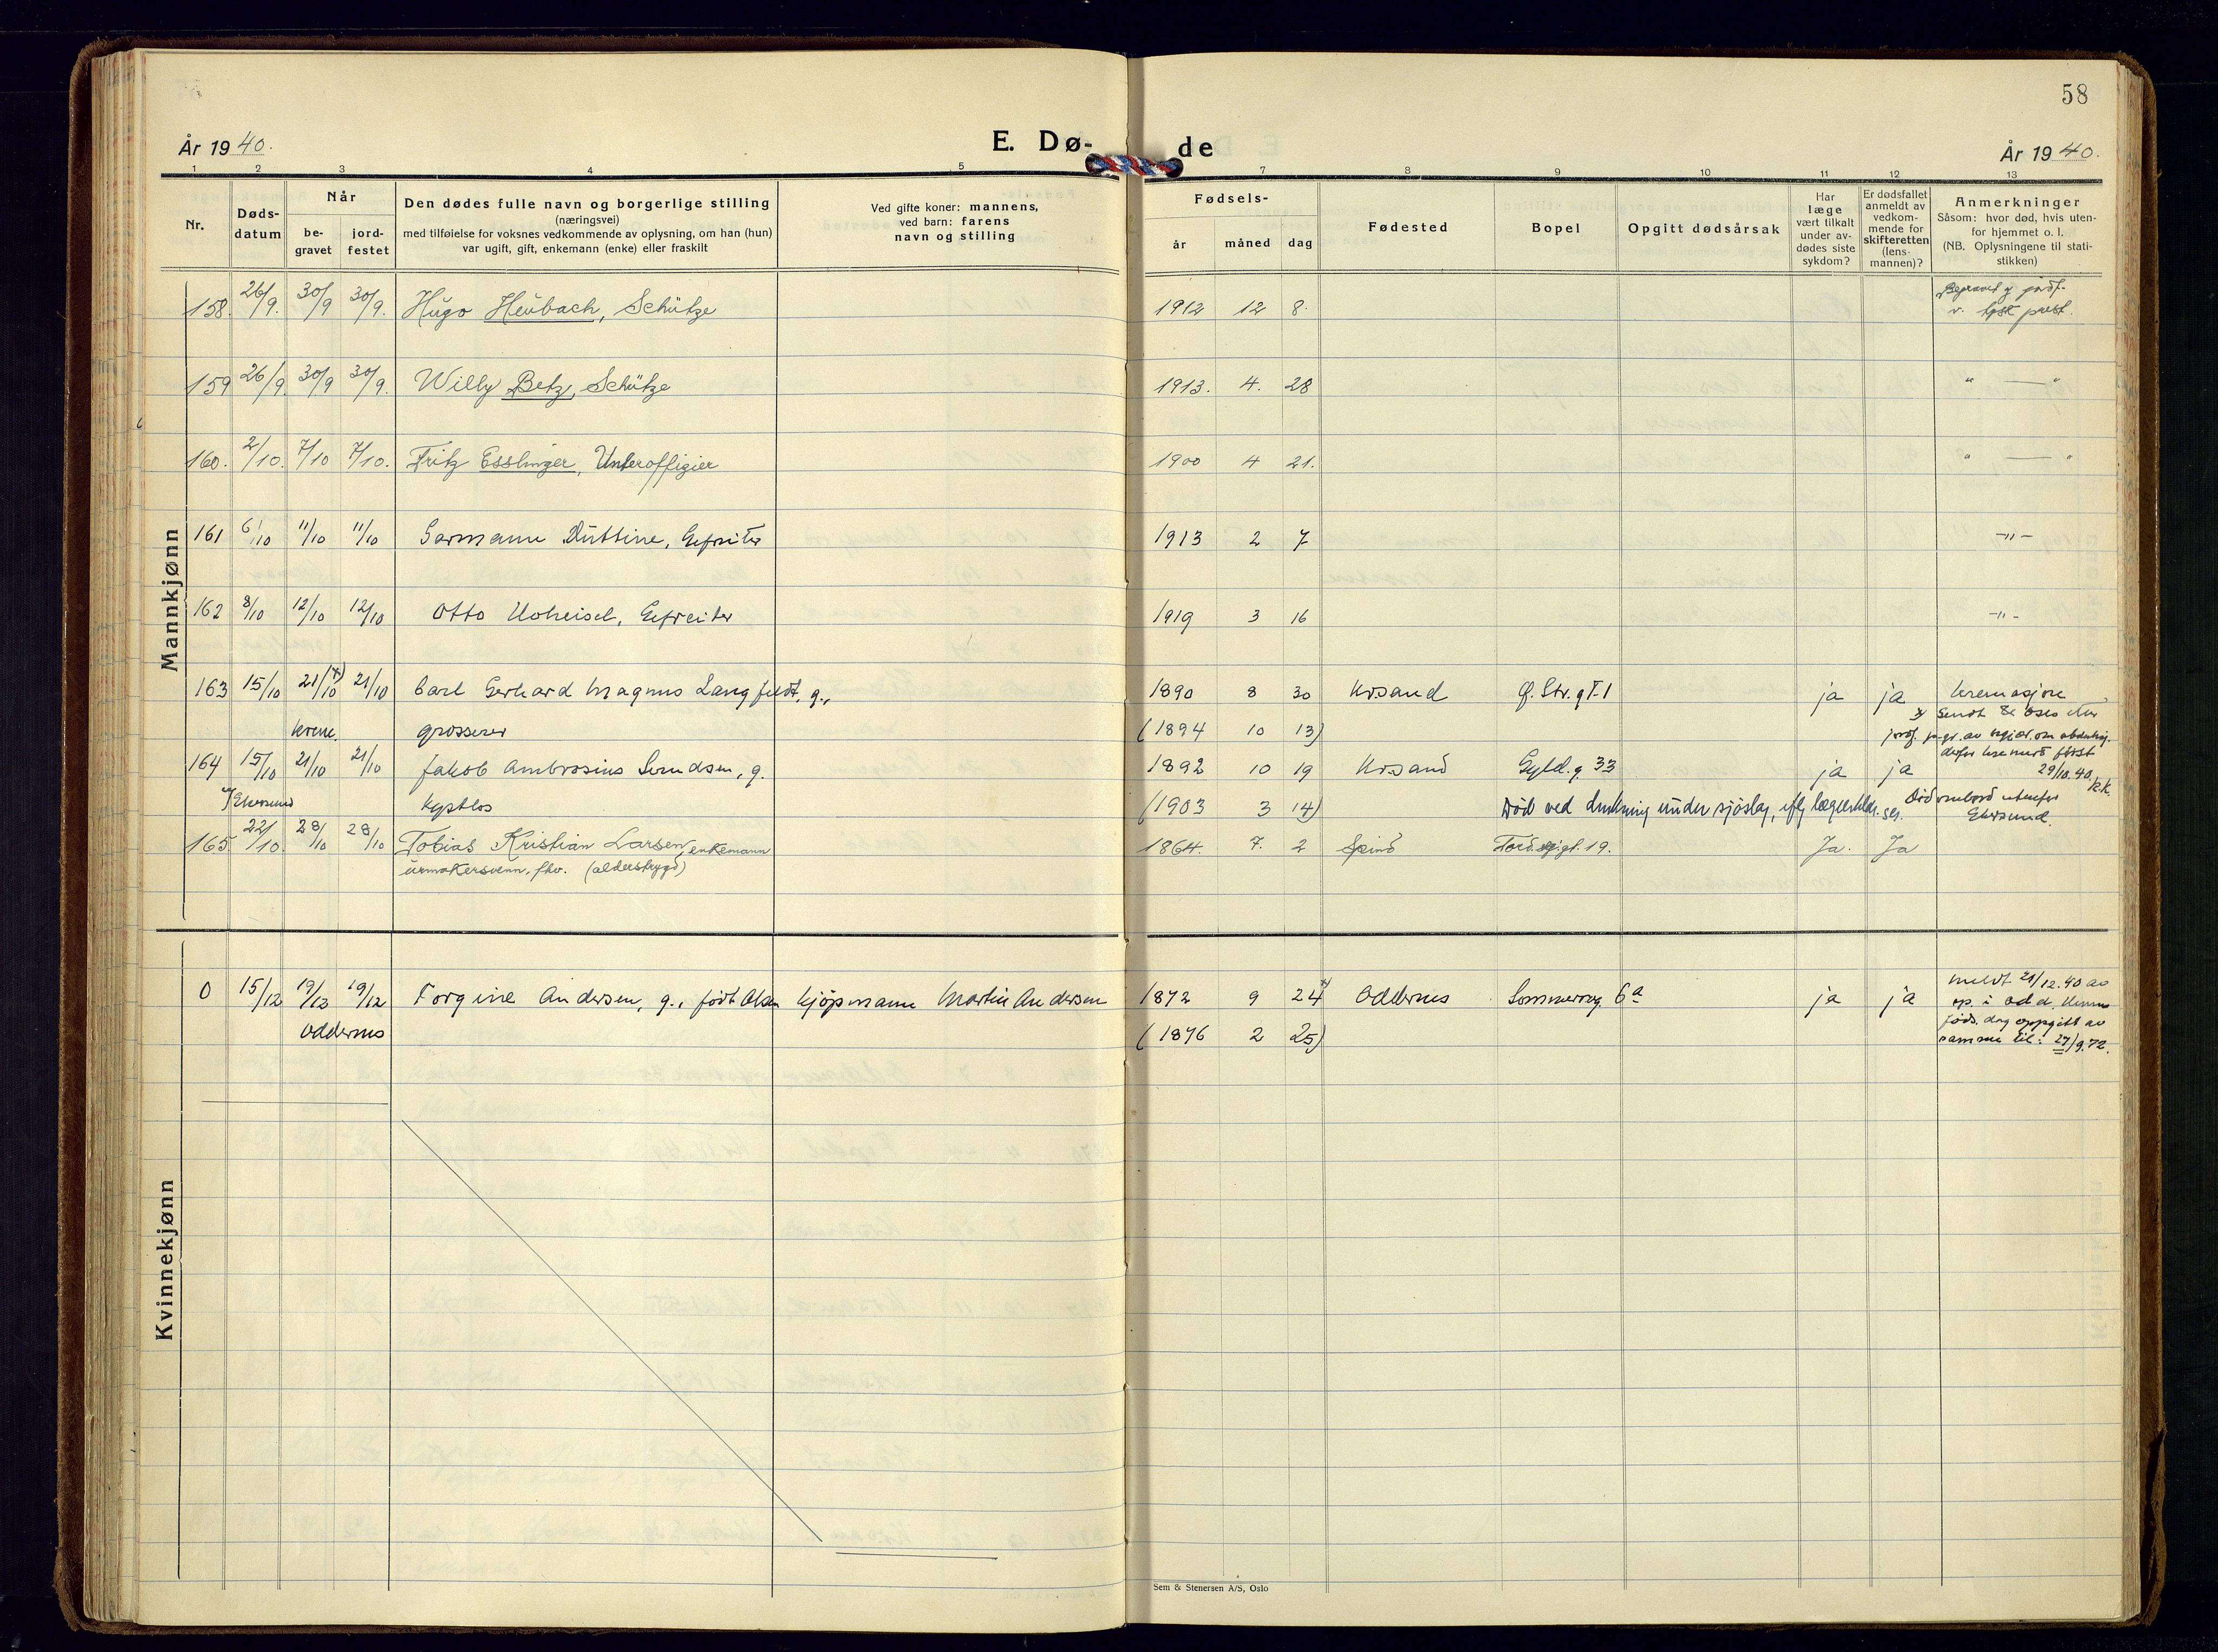 58
År 1940.
E. Dø-
de
År 1940.
1 2 3 4 5 7 8 9 10 11 12 13
Nr.
Døds-
datum
Når
be-
gravet
jord-
festet
Den dødes fulle navn og borgerlige stilling
(næringsvei)
med tilføielse for voksnes vedkommende av oplysning, om han (hun)
var ugift, gift, enkemann (enke) eller fraskilt
Ved gifte koner: mannens,
ved barn: farens
navn og stilling
Fødsels-
år måned dag
Fødested
Bopel
Opgitt dødsårsak
Har
læge
vært tilkalt
under av-
dødes siste
sykdom?
Er dødsfallet
anmeldt av
vedkom-
mende for
skifteretten
(lens-
mannen)?
Anmerkninger
Såsom: hvor død, hvis uten-
for hjemmet o. l.
(NB. Oplysningene til stati-
stikken)
Mannkjønn
158. 26/9. 30/9 30/9. Hugo Heubach, Schütze 1912 12 8. Begravet og jordf.
v. tysk prest.
159 26/9. 30/9 30/9. Willy Betz, Schütze 1913. 4. 28 " — "
160. 2/10. 7/10 7/10. Fritz Esslinger, Unteroffizier 1900 4 21. " — "
161 6/10 11/10 11/10 Düttine, Gefreiter 1913 2 7 -"-
162 8/10 12/10 12/10 Otto Hoheisel, Gefreiter 1919 3 16 -"-
163 15/10 21/10 x) 21/10 Carl Gerhard Magnus Langfeldt, g., 1890 8 30 Krsand Ø. Str. gt. 1 ja ja kremasjon
krem. grosserer (1894 10 13) x) Sendt
164 15/10 21/10 21/10 Jakob Ambrosius Svendsen, g. 1892 10 19 Krsand Gyld. g. 33 ja ja 29/10.40. k.k.
x) Ekersund kystlos (1903 3 14) Död ved drukning under sjöslag, iflg. lægeerklær. Död ombord utenfor
Ekersund.
165. 22/10. 28/10 28/10 Tobias Kristian Larsen, enkemann 1864. 7. 2 Spind gt. 19. Ja. Ja
urmakersvenn, fhv. (alderstrygd)
Kvinnekjønn
0 15/12 19/12 19/12 Torgine Andersen, g., født Olsen kjøpmann Martin Andersen 1872 9 24 x) Oddernes Sommervg 6a ja ja meldt 21/12.40 av
Oddernes (1876 2 25) sp. i Odd. Hennes
föds. dag oppgitt av
samme til: 27/9.72.
Sem & Stenersen A/S, Oslo